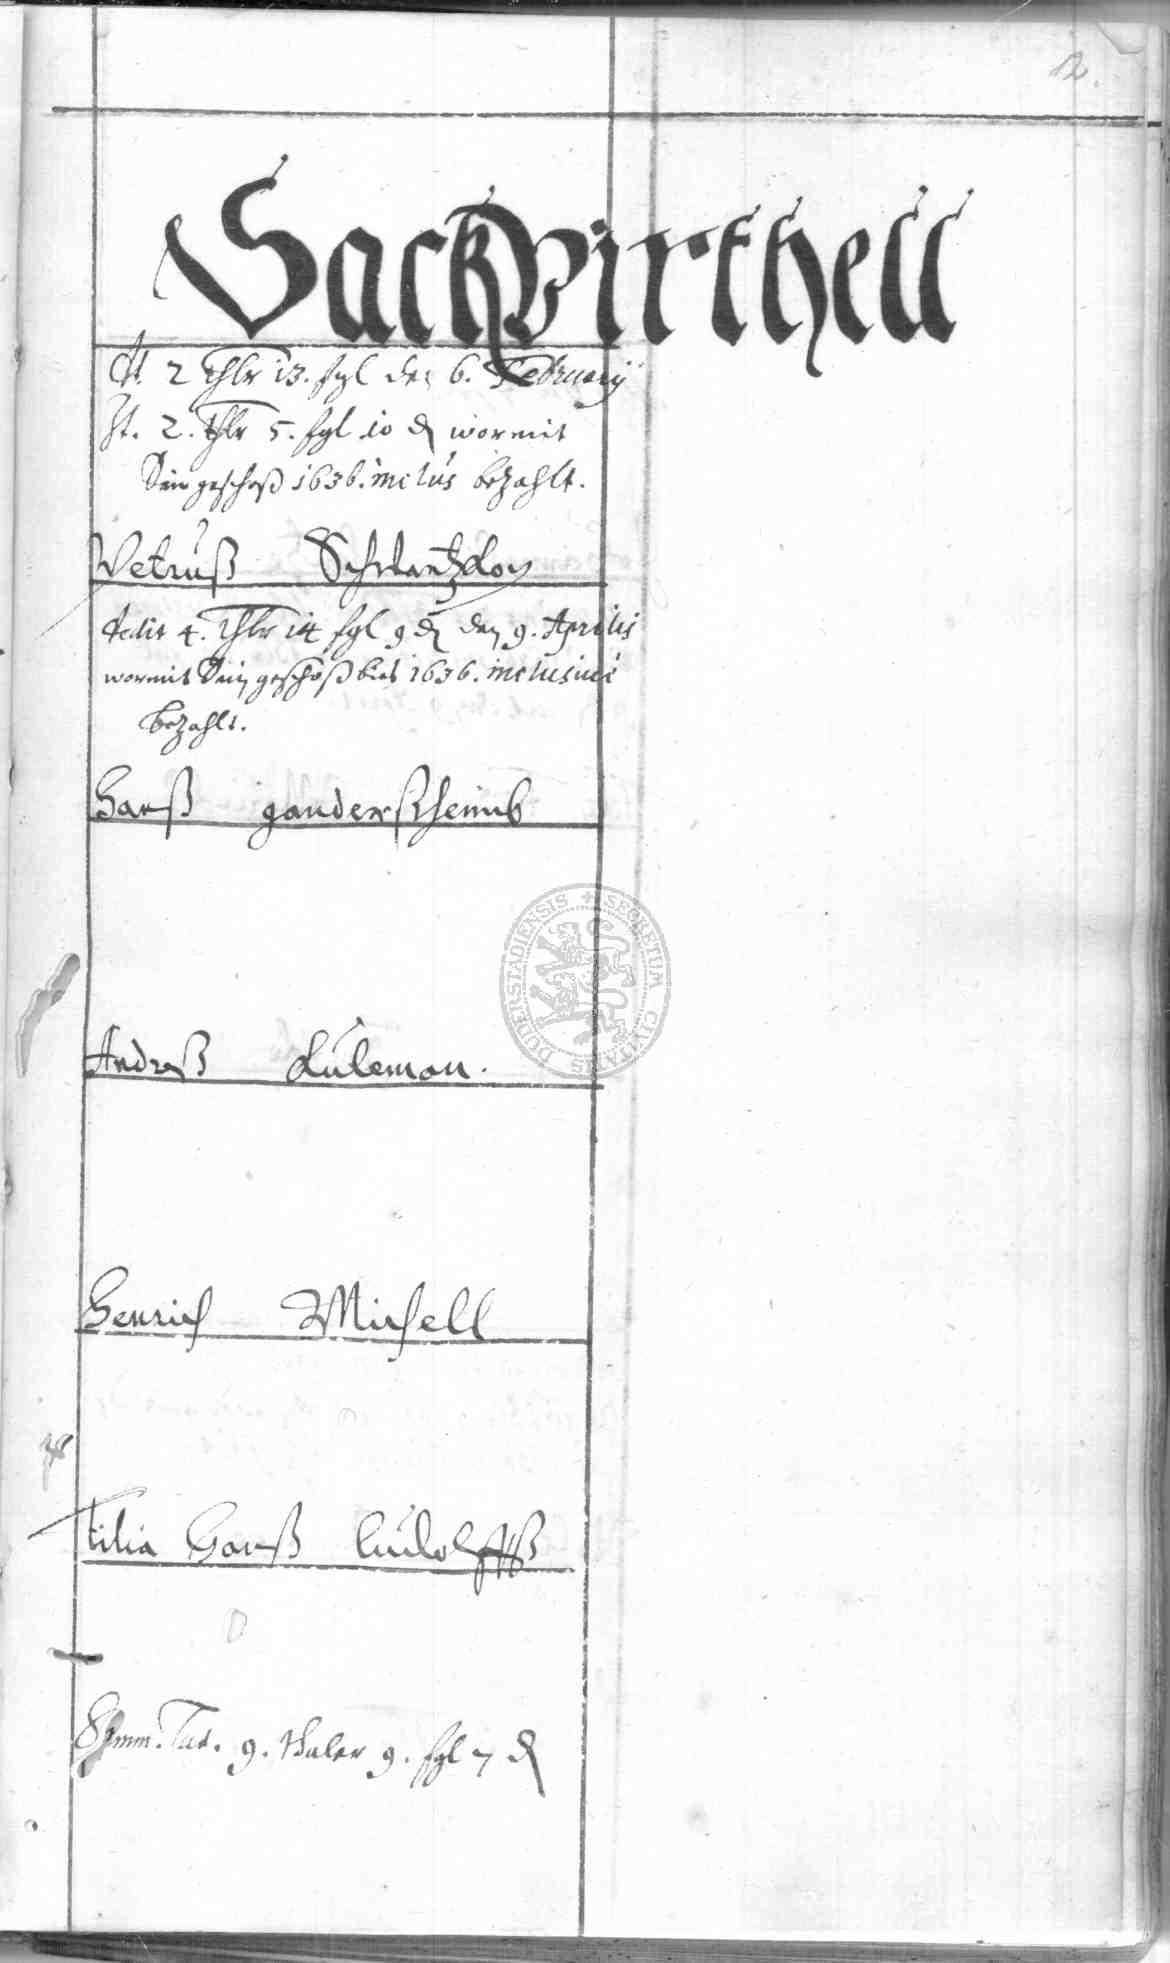 2.
Sackvirthell
dt. 2 thlr 13. sgl den 6. February
It. 2. thlr 5. sgl 10 ₰ wormit
Sein geschoß 1636. inclus bezahlt.
Petruß
dedit 4. Thlr 14 sgl 9 ₰ den 9. Aprilis
wormit Sein geschoß bies 1636. inclusiue
bezahlt.
Hanß ganderßheimb
Andreß Luleman.
Henrich Michell
tilia Hanß Ludolffß
Summ. Lat. 9. thaler 9. sgl 7 ₰
SECRETUM CIVITATIS DUDERSTADIENSIS